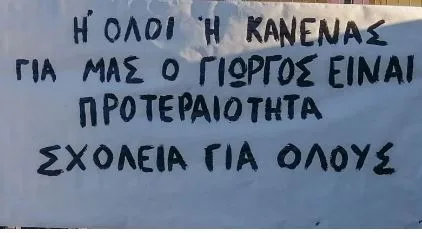 Ή ΟΛΟΙ Ή ΚΑΝΕΝΑΣ
ΓΙΑ ΜΑΣ Ο ΓΙΩΡΓΟΣ ΕΙΝΑΙ
ΠΡΟΤΕΡΑΙΟΤΗΤΑ
ΣΧΟΛΕΙΑ ΓΙΑ ΟΛΟΥΣ